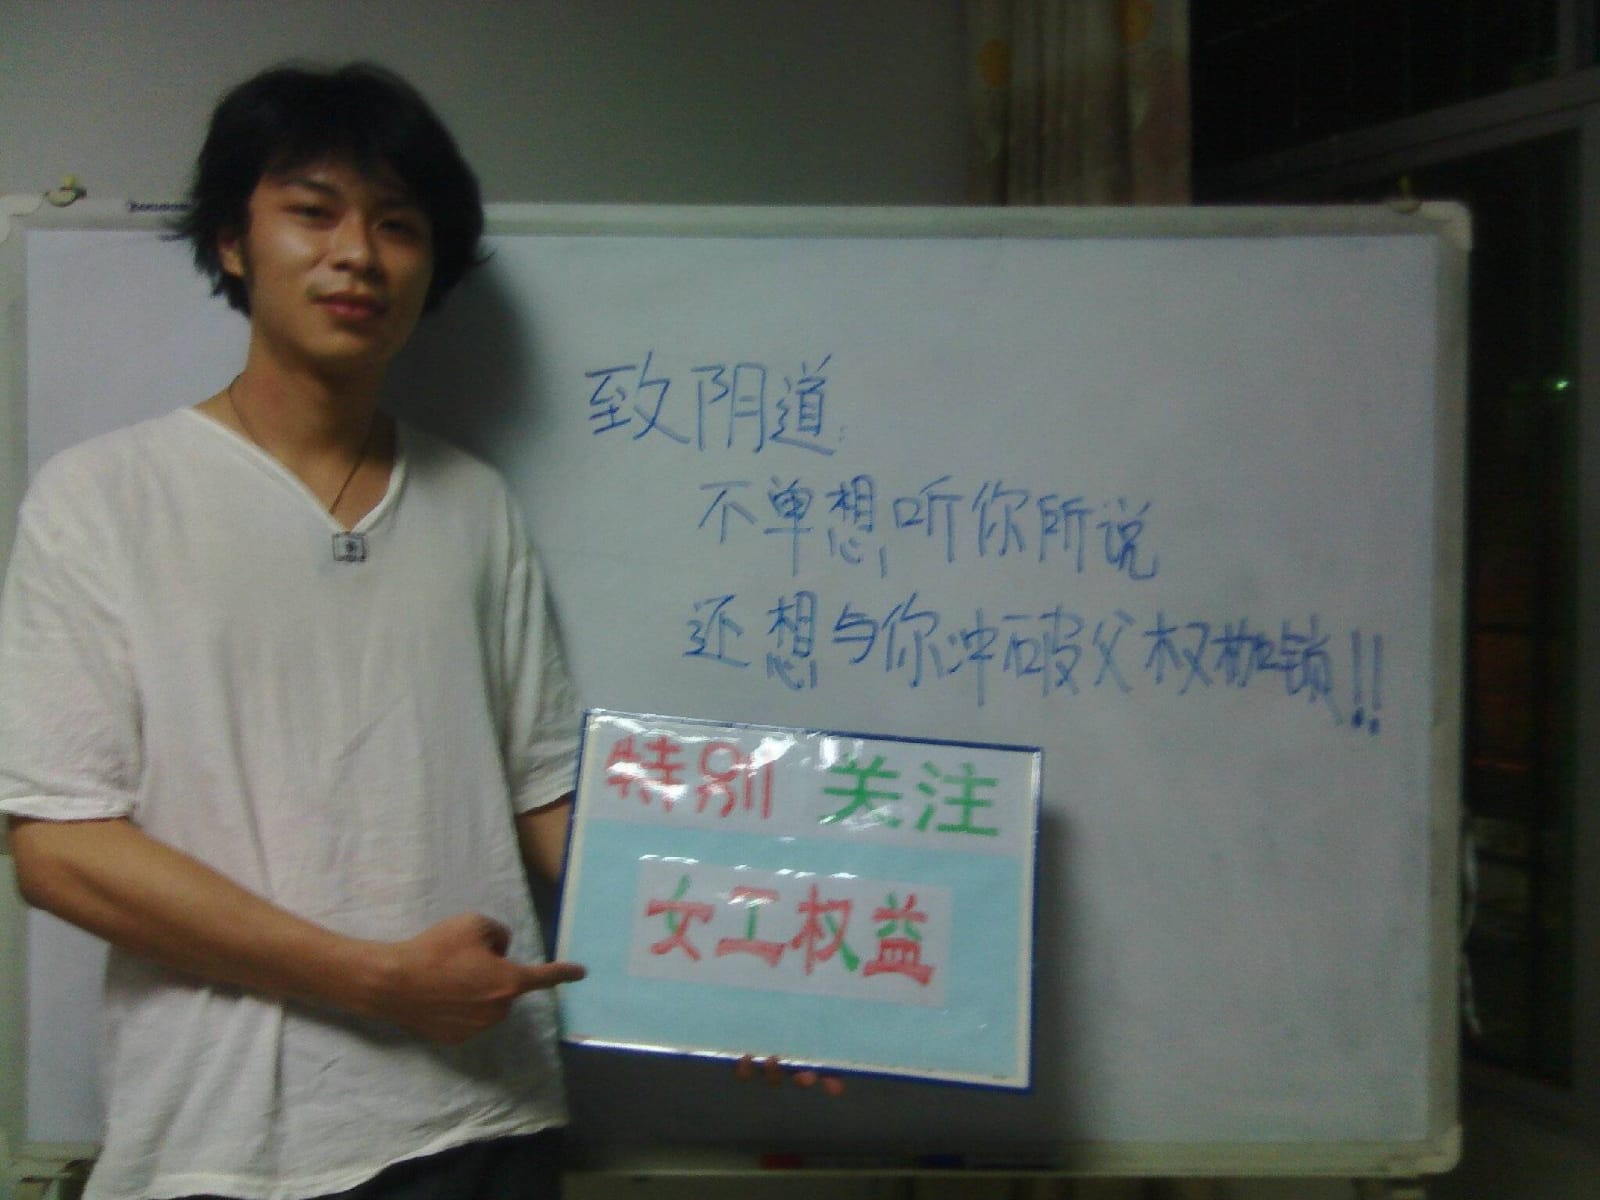 致阴道:
不单想听你所说
还想与你冲破父权枷锁!!
特别关注
女工权益